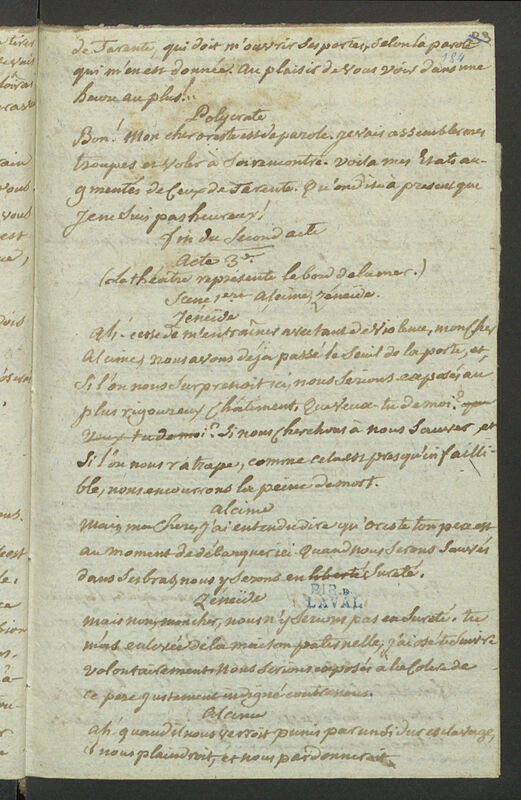 23
184
de Tarente, qui doit m'ouvrir ses portes, selon la parole
qui m'en est donnée. au plaisir de vous voir dans une
heure au plus!
Polycrate
Bon! Mon cher oreste est de parole. je vais assembler mes
troupes et voler à sa rencontre. voila mes Etats au-
gmentés de Ceux de Tarente. Qu'on dise à present que
Je ne suis pas heureux!
fin du Second acte
Acte 3e
(Le théatre represente le bord de la mer.)
Scene 1ere Alcime, Zéneïde.
Zéneïde
Ah! cesse de m'entraîner avec tant de violence, mon Cher
Alcime, nous avons déja passé le Seuil de la porte, et
Si l'on nous Surprenoit ici, nous Serions exposés au
plus rigoureux Châtiment. Que veux-tu de moi? que
veux-tu de moi? Si nous cherchons à nous Sauver, et
Si l'on nous ratrape, comme cela est presqu'infailli-
ble, nous encourrons la peine de mort.
alcime
Mais, ma chere, j'ai entendu dire qu'oreste ton pere est
au moment de débarquer ici. Quand nous Serons Sauvés
dans Ses bras, nous y Serons en liberté Sureté.
Zéneïde
mais non, mon cher, nous n'y Serions pas en Sureté. tu
m'as enlevée de la maison paternelle, j'ai osé te suivre
volontairement. Nous Serions exposés à la Colere de
ce pere justement indigné contre nous.
Alcime
ah! quand il nous verroit punis par un si dur esclavage,
il nous plaindroit, et nous pardonneroit
BIB. D.
LAVAL